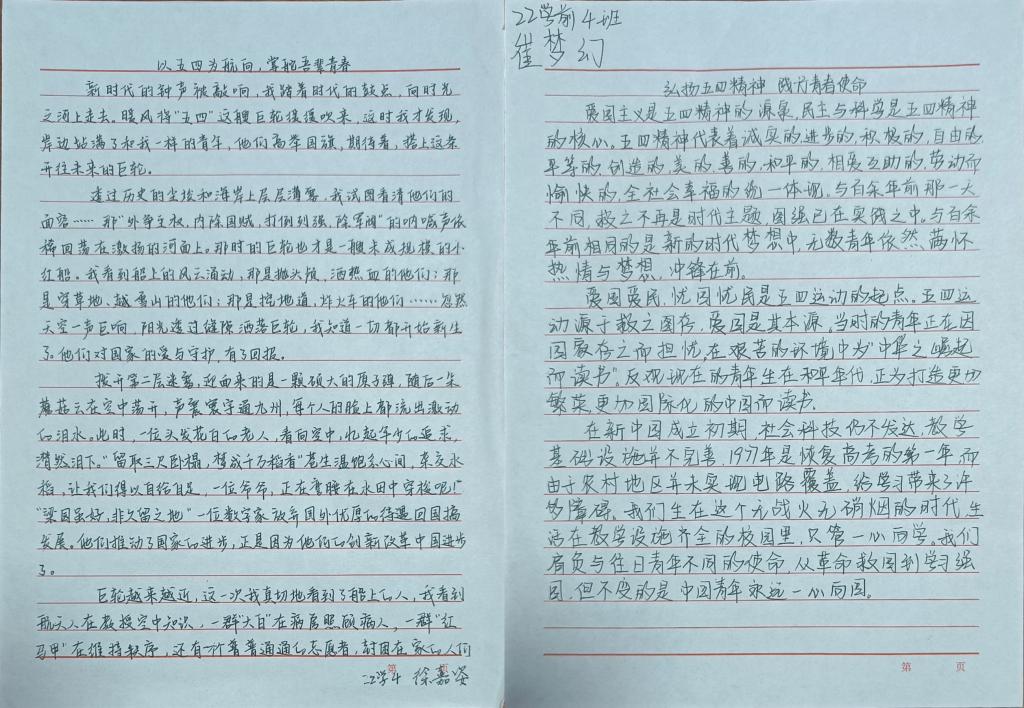 以五四为航向，掌舵吾辈青春
新时代的钟声被敲响，我踏着时代的鼓点，向时光
之河上走去，暖风将“五四”这艘巨轮缓缓吹来，这时我才发现，
岸边站满了和我一样的青年，他们高举国旗，期待着，搭上这条
开往未来的巨轮。
透过历史的尘埃和海岸上层层薄雾，我试图看清他们的
面容……那“外争主权，内除国贼，打倒列强，除军阀”的呐喊声依
稀回荡在激扬的河面上。那时的巨轮也才是一艘未成规模的小
红船。我看到船上的风云涌动，那是抛头颅，洒热血的他们；那
是穿草地、越雪山的他们；那是挖地道，炸火车的他们……忽然
天空一声巨响，阳光透过缝隙洒落巨轮，我知道一切都开始新生
了。他们对国家的爱与守护，有了回报。
拨开第二层迷雾，迎面来的是一颗硕大的原子弹，随后一朵
蘑菇云在空中荡开，声震寰宇通九州，每个人的脸上都流出激动
的泪水。此时，一位头发花白的老人，看向空中，忆起年少的追求，
潸然泪下。“留取三尺卧榻，梦成千万稻香”苍生温饱系心间，杂交水
稻，让我们得以自给自足，一位爷爷，正在弯腰在水田中穿梭吧！”
“梁园虽好，非久留之地”一位数学家放弃国外优厚的待遇回国搞
发展。他们推动了国家的进步，正是因为他们的创新改革中国进步
了。
巨轮越来越近，这一次我真切地看到了船上的人，我看到
航天人在教授空中知识，一群“大白”在病房照顾病人，一群“红
马甲”在维持秩序，还有一个普普通通的志愿者，封困在家的人们
第 页
22学4 徐嘉姿
22学前4班
崔梦幻
弘扬五四精神 践行青春使命
爱国主义是五四精神的源泉，民主与科学是五四精神
的核心。五四精神代表着诚实的，进步的，积极的，自由的，
平等的，创造的，美的，善的，和平的，相爱互助的，劳动而
愉快的，全社会幸福的统一体现。与百余年前那一天
不同，救亡不再是时代主题，图强已在实践之中。与百余
年前相同的是新的时代梦想中，无数青年依然满怀
热情与梦想，冲锋在前。
爱国爱民，忧国忧民是五四运动的起点。五四运
动源于救亡图存，爱国是其本源，当时的青年正在因
国家存亡而担忧，在艰苦的环境中为“中华之崛起
而读书”。反观现在的青年生在和平年代，正为打造更加
繁荣更加国际化的中国而读书。
在新中国成立初期，社会科技仍不发达，教学
基础设施并不完善，1977年是恢复高考的第一年，而
由于农村地区并未实现电路覆盖，给学习带来了许
多障碍。我们生在这个无战火无硝烟的时代，生
活在教学设施齐全的校园里，只管一心向学。我们
肩负与往日青年不同的使命，从革命救国到学习强
国，但不变的是中国青年永远一心向国。
第 页